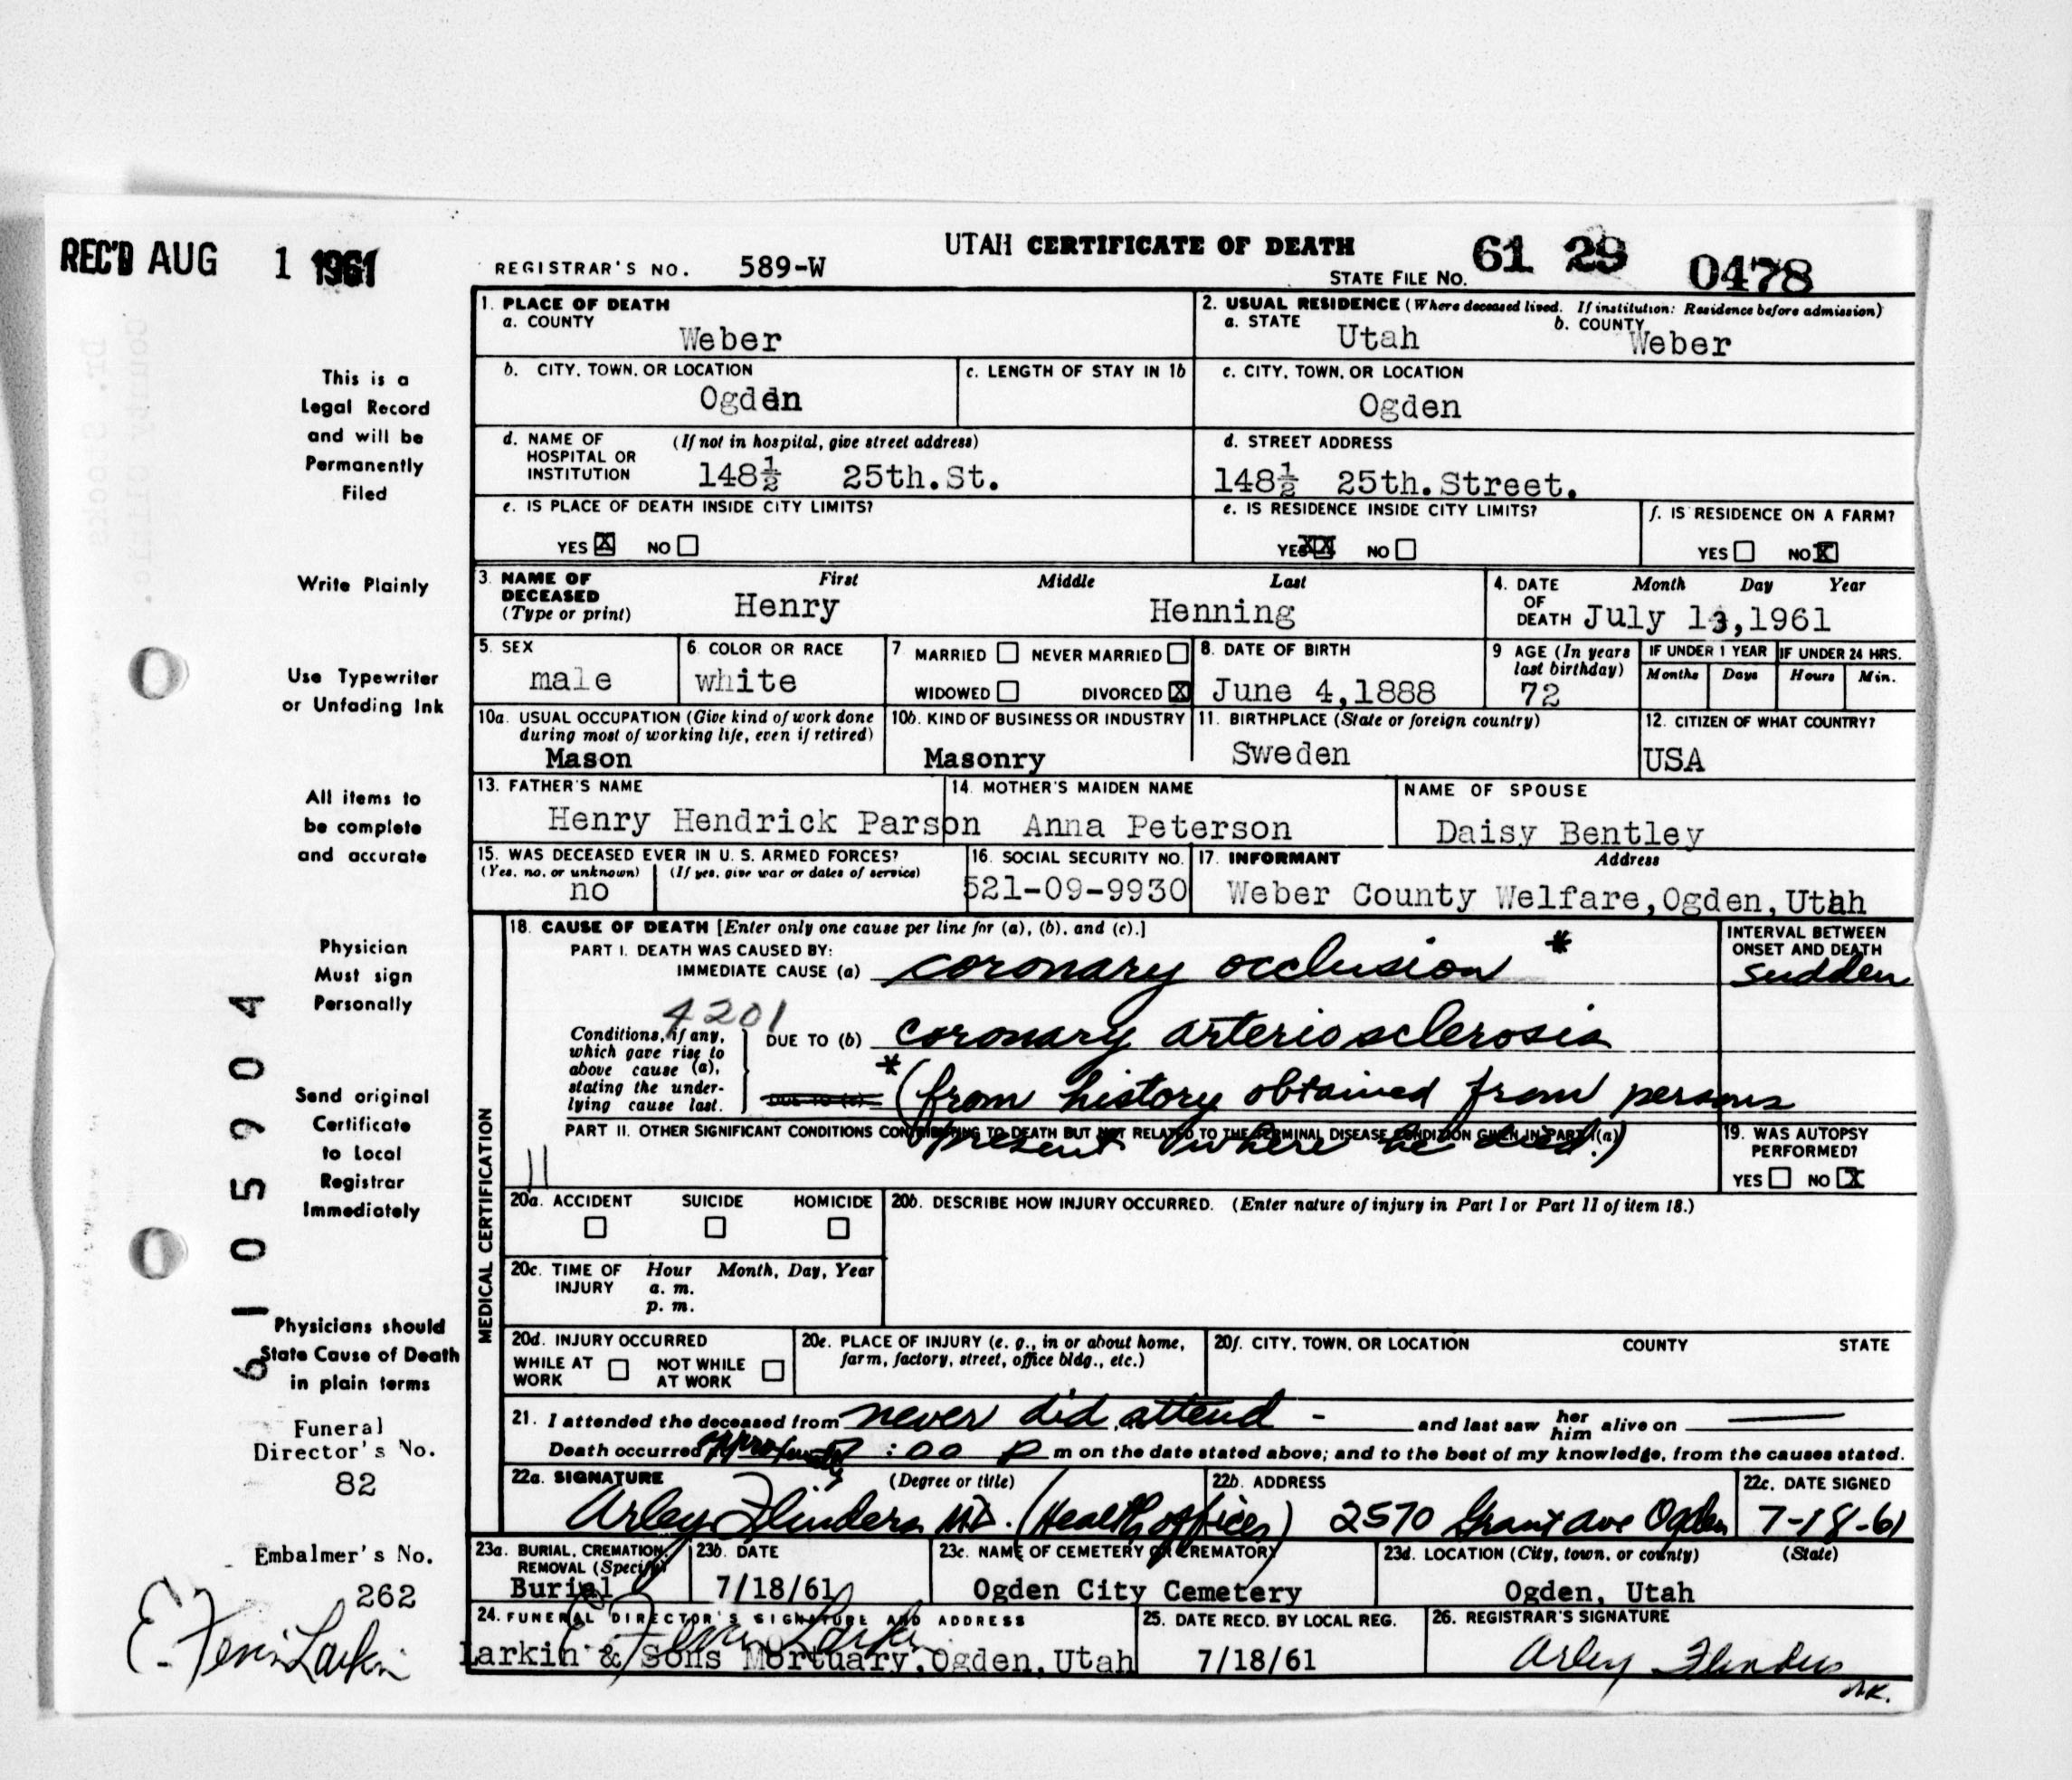 REC'D AUG 1 1961
UTAH CERTIFICATE OF DEATH
REGISTRAR'S NO. 589-W
STATE FILE NO. 61 29 0478
1. PLACE OF DEATH
a. COUNTY
Weber
2. USUAL RESIDENCE (Where deceased lived. If institution: Residence before admission)
a. STATE Utah b. COUNTY Weber
b. CITY, TOWN, OR LOCATION
Ogden
c. LENGTH OF STAY IN 1b
c. CITY, TOWN, OR LOCATION
Ogden
d. NAME OF HOSPITAL OR INSTITUTION (If not in hospital, give street address)
148½ 25th.St.
d. STREET ADDRESS
148½ 25th.Street.
e. IS PLACE OF DEATH INSIDE CITY LIMITS?
YES X NO
e. IS RESIDENCE INSIDE CITY LIMITS?
YES XX NO
f. IS RESIDENCE ON A FARM?
YES NO X
3. NAME OF DECEASED (Type or print)
First Middle Last
Henry Henning
4. DATE OF DEATH Month Day Year
July 13,1961
5. SEX
male
6. COLOR OR RACE
white
7. MARRIED NEVER MARRIED
WIDOWED DIVORCED X
8. DATE OF BIRTH
June 4,1888
9 AGE (In years last birthday)
72
IF UNDER 1 YEAR
Months Days
IF UNDER 24 HRS.
Hours Min.
10a. USUAL OCCUPATION (Give kind of work done during most of working life, even if retired)
Mason
10b. KIND OF BUSINESS OR INDUSTRY
Masonry
11. BIRTHPLACE (State or foreign country)
Sweden
12. CITIZEN OF WHAT COUNTRY?
USA
13. FATHER'S NAME
Henry Hendrick Parson
14. MOTHER'S MAIDEN NAME
Anna Peterson
NAME OF SPOUSE
Daisy Bentley
15. WAS DECEASED EVER IN U. S. ARMED FORCES?
(Yes, no, or unknown) (If yes, give war or dates of service)
no
16. SOCIAL SECURITY NO.
521-09-9930
17. INFORMANT Address
Weber County Welfare,Ogden,Utah
MEDICAL CERTIFICATION
18. CAUSE OF DEATH [Enter only one cause per line for (a), (b), and (c).]
PART I. DEATH WAS CAUSED BY:
IMMEDIATE CAUSE (a) coronary occlusion *
INTERVAL BETWEEN ONSET AND DEATH
sudden
4201
Conditions, if any, which gave rise to above cause (a), stating the underlying cause last.
DUE TO (b) coronary arteriosclerosis
DUE TO (c) * (from history obtained from persons
present where he died.)
PART II. OTHER SIGNIFICANT CONDITIONS CONTRIBUTING TO DEATH BUT NOT RELATED TO THE TERMINAL DISEASE CONDITION GIVEN IN PART I(a)
11
19. WAS AUTOPSY PERFORMED?
YES NO X
20a. ACCIDENT SUICIDE HOMICIDE
20b. DESCRIBE HOW INJURY OCCURRED. (Enter nature of injury in Part I or Part II of item 18.)
20c. TIME OF INJURY Hour Month, Day, Year
a. m.
p. m.
20d. INJURY OCCURRED
WHILE AT WORK NOT WHILE AT WORK
20e. PLACE OF INJURY (e. g., in or about home, farm, factory, street, office bldg., etc.)
20f. CITY, TOWN, OR LOCATION COUNTY STATE
21. I attended the deceased from never did attend - and last saw her him alive on
Death occurred :00 p m on the date stated above; and to the best of my knowledge, from the causes stated.
22a. SIGNATURE (Degree or title)
Arley Flinders MD. (Health officer)
22b. ADDRESS
2570 Grant ave Ogden
22c. DATE SIGNED
7-18-61
23a. BURIAL, CREMATION, REMOVAL (Specify)
Burial
23b. DATE
7/18/61
23c. NAME OF CEMETERY OR CREMATORY
Ogden City Cemetery
23d. LOCATION (City, town, or county) (State)
Ogden, Utah
24. FUNERAL DIRECTOR'S SIGNATURE AND ADDRESS
E. Ferrin Larkin
Larkin & Sons Mortuary,Ogden,Utah
25. DATE RECD. BY LOCAL REG.
7/18/61
26. REGISTRAR'S SIGNATURE
Arley Flinders
This is a
Legal Record
and will be
Permanently
Filed
Write Plainly
Use Typewriter
or Unfading Ink
All items to
be complete
and accurate
Physician
Must sign
Personally
Send original
Certificate
to Local
Registrar
Immediately
Physicians should
State Cause of Death
in plain terms
61 05904
Funeral
Director's No.
82
Embalmer's No.
262
E. Ferrin Larkin